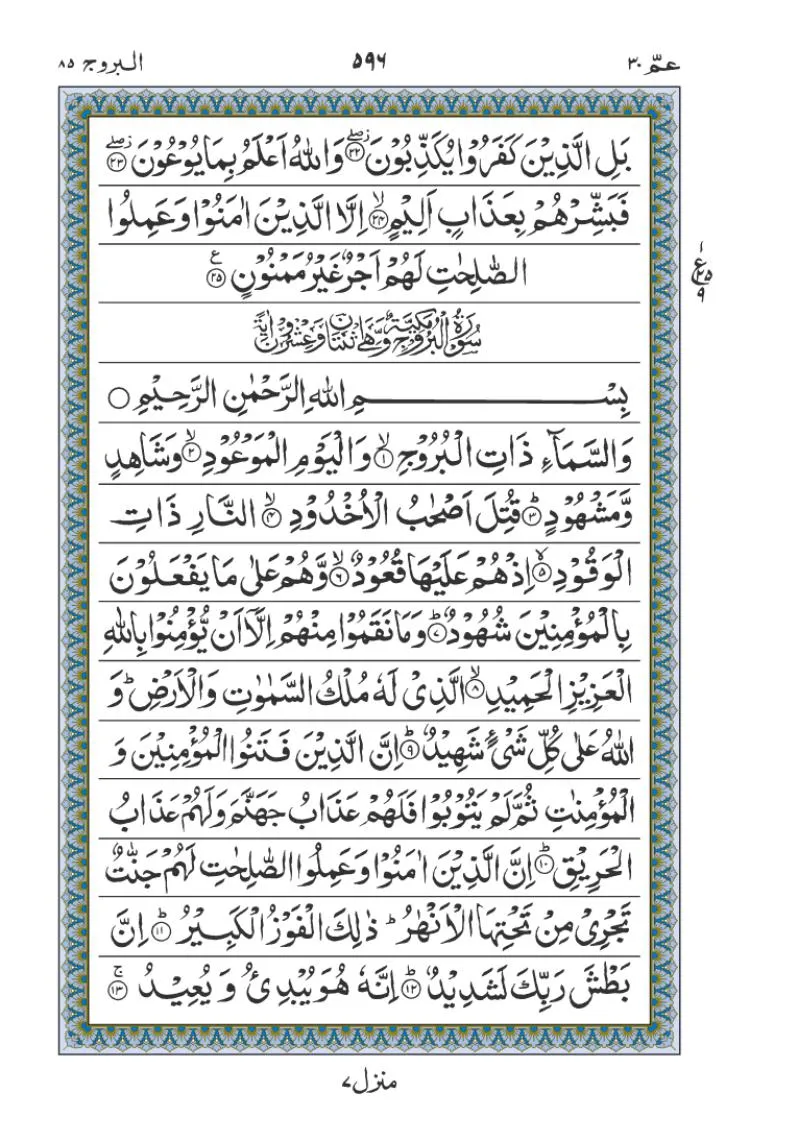 عمّ ۳۰ ۵۹۶ البروج ۸۵
بَلِ الَّذِیْنَ كَفَرُوْا یُكَذِّبُوْنَ ۟ۖزصلے ۲۲ وَاللّٰهُ اَعْلَمُ بِمَا یُوْعُوْنَ ۟ۖزصلے ۲۳
فَبَشِّرْهُمْ بِعَذَابٍ اَلِیْمٍ ۙ۲۴ اِلَّا الَّذِیْنَ اٰمَنُوْا وَعَمِلُوا
الصّٰلِحٰتِ لَهُمْ اَجْرٌ غَیْرُ مَمْنُوْنٍ ۲۵ ع
۱ ع ۲۵ ۹
سُوْرَةُ الْبُرُوْجِ مَكِّیَّةٌ وَّهِیَ اثْنَتَانِ وَعِشْرُوْنَ اٰیَةً
بِسْمِ اللّٰهِ الرَّحْمٰنِ الرَّحِیْمِ ○
وَالسَّمَآءِ ذَاتِ الْبُرُوْجِ ۙ۱ وَالْیَوْمِ الْمَوْعُوْدِ ۙ۲ وَشَاهِدٍ
وَّمَشْهُوْدٍ ؕ۳ قُتِلَ اَصْحٰبُ الْاُخْدُوْدِ ۙ۴ النَّارِ ذَاتِ
الْوَقُوْدِ ۙ۵ اِذْ هُمْ عَلَیْهَا قُعُوْدٌ ۙ۶ وَّهُمْ عَلٰی مَا یَفْعَلُوْنَ
بِالْمُؤْمِنِیْنَ شُهُوْدٌ ؕ۷ وَمَا نَقَمُوْا مِنْهُمْ اِلَّاۤ اَنْ یُّؤْمِنُوْا بِاللّٰهِ
الْعَزِیْزِ الْحَمِیْدِ ۙ۸ الَّذِیْ لَهٗ مُلْكُ السَّمٰوٰتِ وَالْاَرْضِ ؕ وَ
اللّٰهُ عَلٰی كُلِّ شَیْءٍ شَهِیْدٌ ؕ۹ اِنَّ الَّذِیْنَ فَتَنُوا الْمُؤْمِنِیْنَ وَ
الْمُؤْمِنٰتِ ثُمَّ لَمْ یَتُوْبُوْا فَلَهُمْ عَذَابُ جَهَنَّمَ وَلَهُمْ عَذَابُ
الْحَرِیْقِ ؕ۱۰ اِنَّ الَّذِیْنَ اٰمَنُوْا وَعَمِلُوا الصّٰلِحٰتِ لَهُمْ جَنّٰتٌ
تَجْرِیْ مِنْ تَحْتِهَا الْاَنْهٰرُ ؕ ذٰلِكَ الْفَوْزُ الْكَبِیْرُ ؕ۱۱ اِنَّ
بَطْشَ رَبِّكَ لَشَدِیْدٌ ؕ۱۲ اِنَّهٗ هُوَ یُبْدِئُ وَ یُعِیْدُ ۚ۱۳
منزل ۷